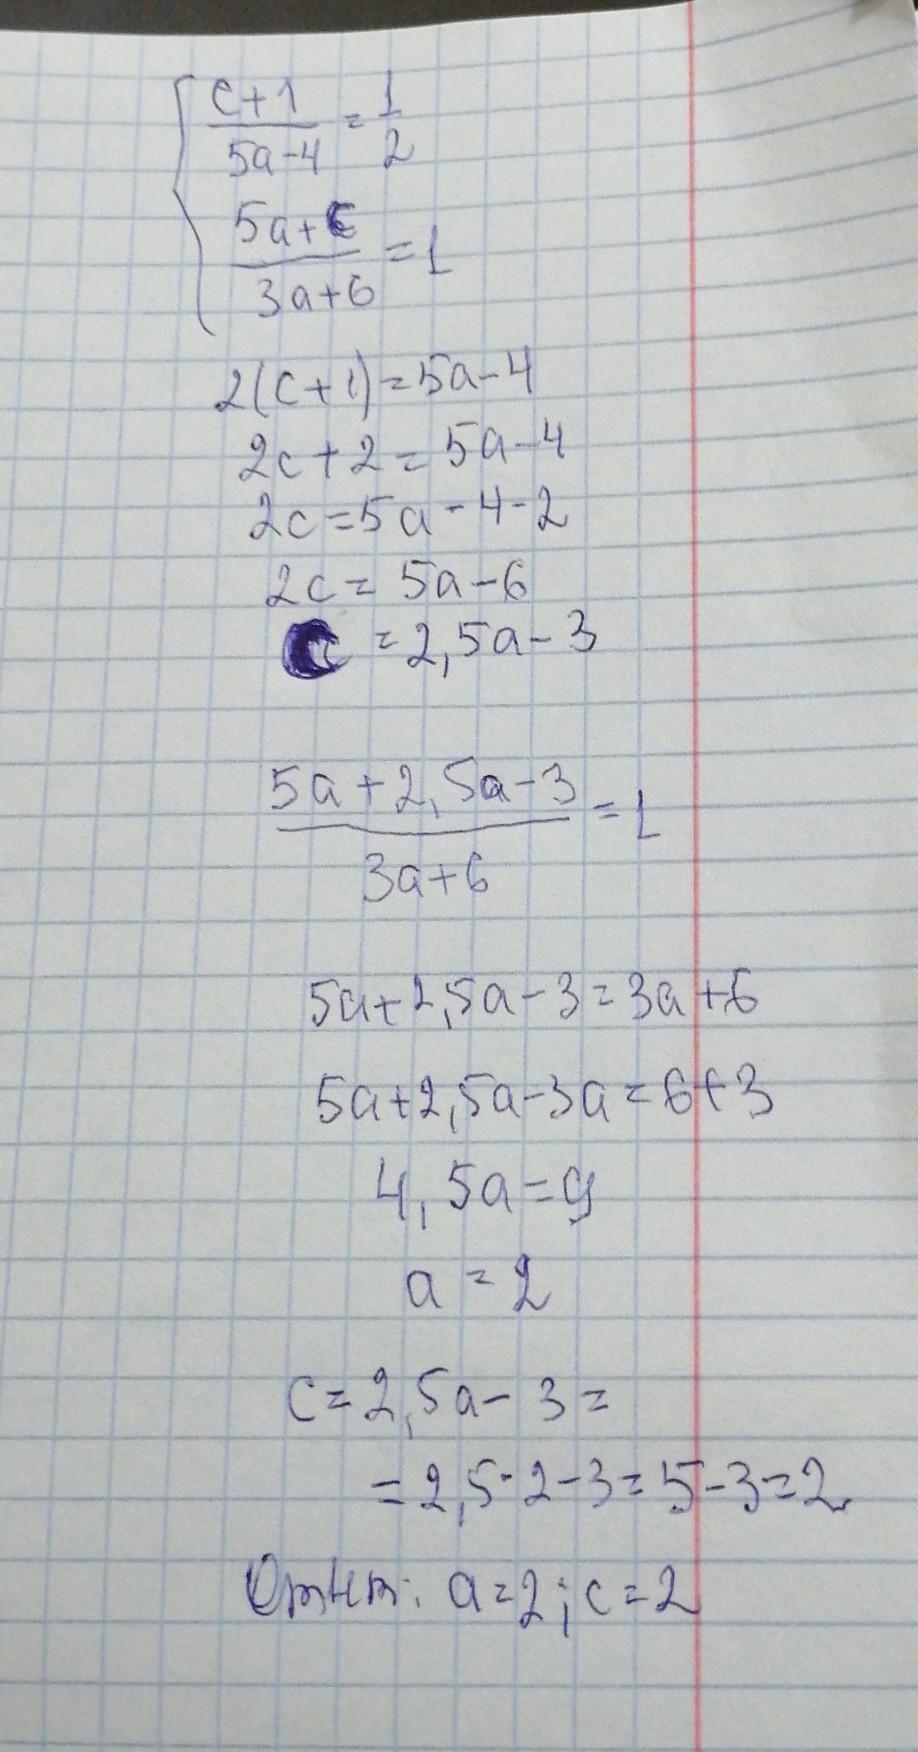 c+1/5a-4 = 1/2
5a+c/3a+6 = 1
2(c+1)=5a-4
2c+2=5a-4
2c=5a-4-2
2c=5a-6
c=2,5a-3
5a+2,5a-3/3a+6 = 1
5a+2,5a-3=3a+6
5a+2,5a-3a=6+3
4,5a=9
a=2
c=2,5a-3=
=2,5·2-3=5-3=2.
Ответ: a=2; c=2